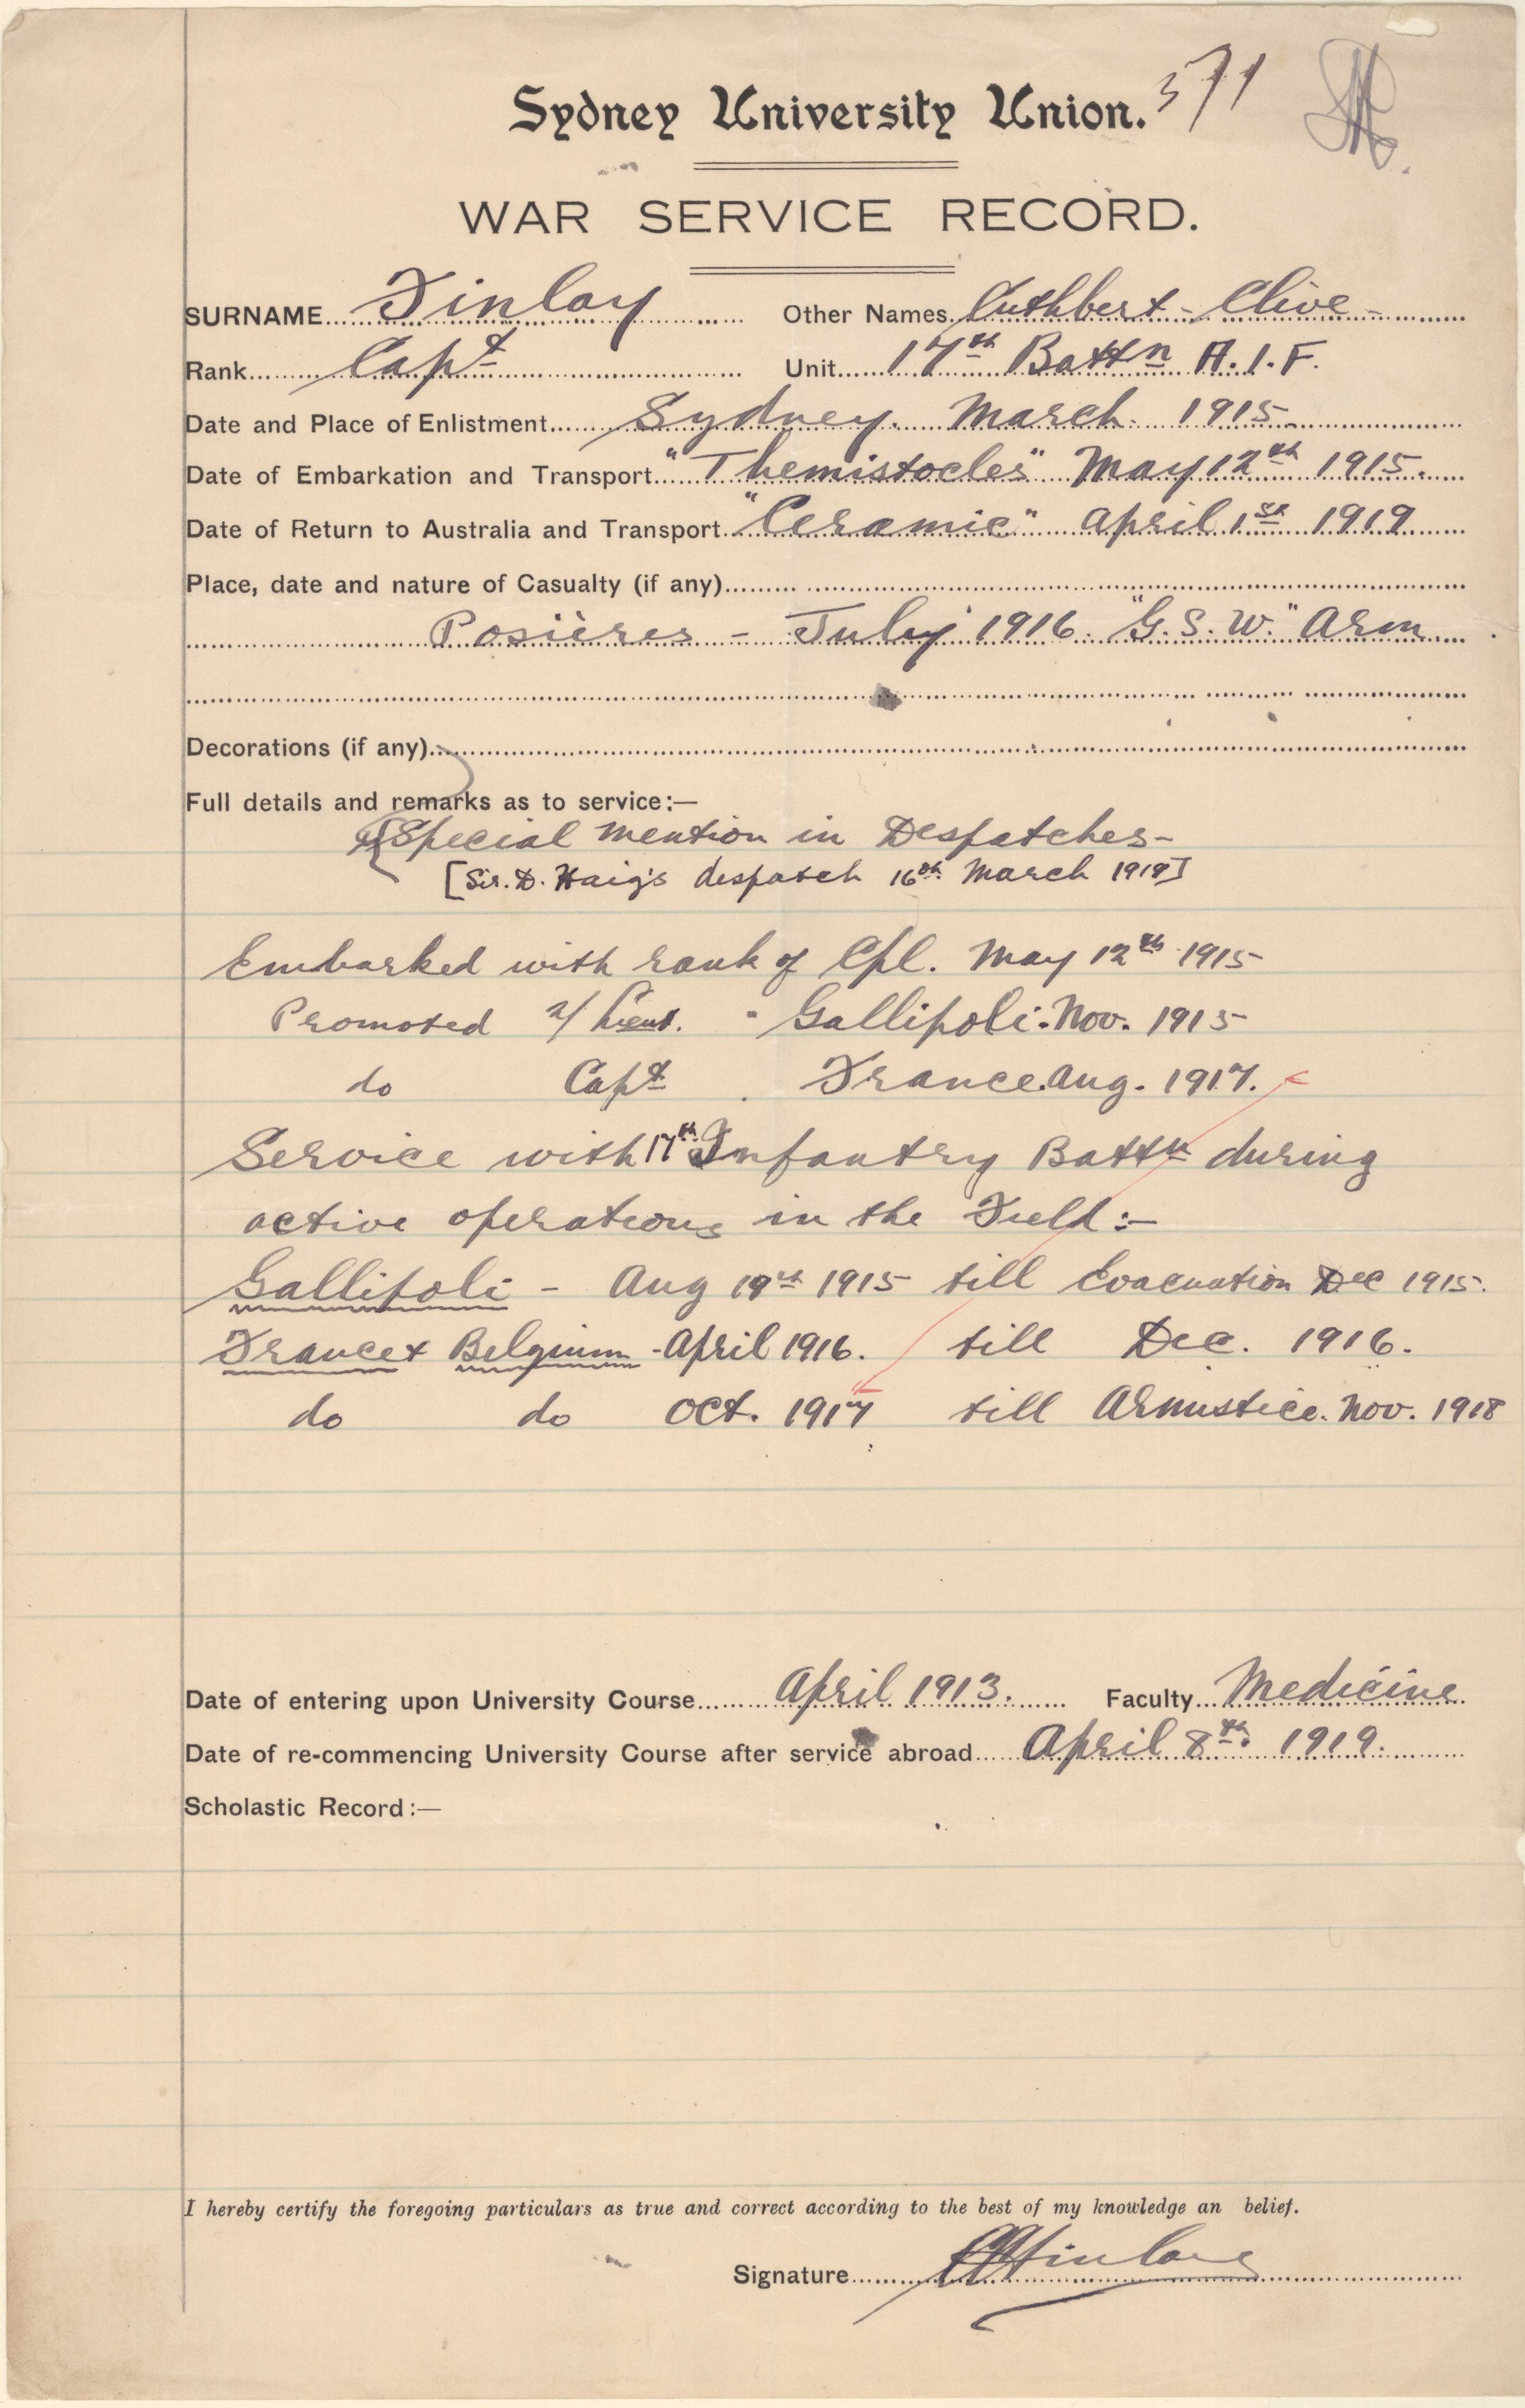 Sydney University Union. 371
WAR SERVICE RECORD.
SURNAME Finlay Other Names Cuthbert - Clive -
Rank Capt Unit 17th Battn A.I.F.
Date and Place of Enlistment Sydney. March. 1915
Date of Embarkation and Transport "Themistocles" May 12th 1915.
Date of Return to Australia and Transport "Ceramic" April 1st 1919
Place, date and nature of Casualty (if any)
Posières - July 1916. "G.S.W." Arm
Decorations (if any)
Full details and remarks as to service:—
Special mention in Despatches -
[Sir. D. Haig's despatch 16th March 1919]
Embarked with rank of Cpl. May 12th 1915
Promoted 2/Lieut. " Gallipoli. Nov. 1915
do Capt . France. Aug. 1917.
Service with 17th Infantry Battn during
active operations in the Field :—
Gallipoli - Aug 19th 1915 till Evacuation Dec 1915.
France & Belgium - April 1916. till Dec. 1916.
do do Oct. 1917 till Armistice. Nov. 1918
Date of entering upon University Course April 1913. Faculty Medicine
Date of re-commencing University Course after service abroad April 8th. 1919.
Scholastic Record :—
I hereby certify the foregoing particulars as true and correct according to the best of my knowledge an belief.
Signature CCFinlay